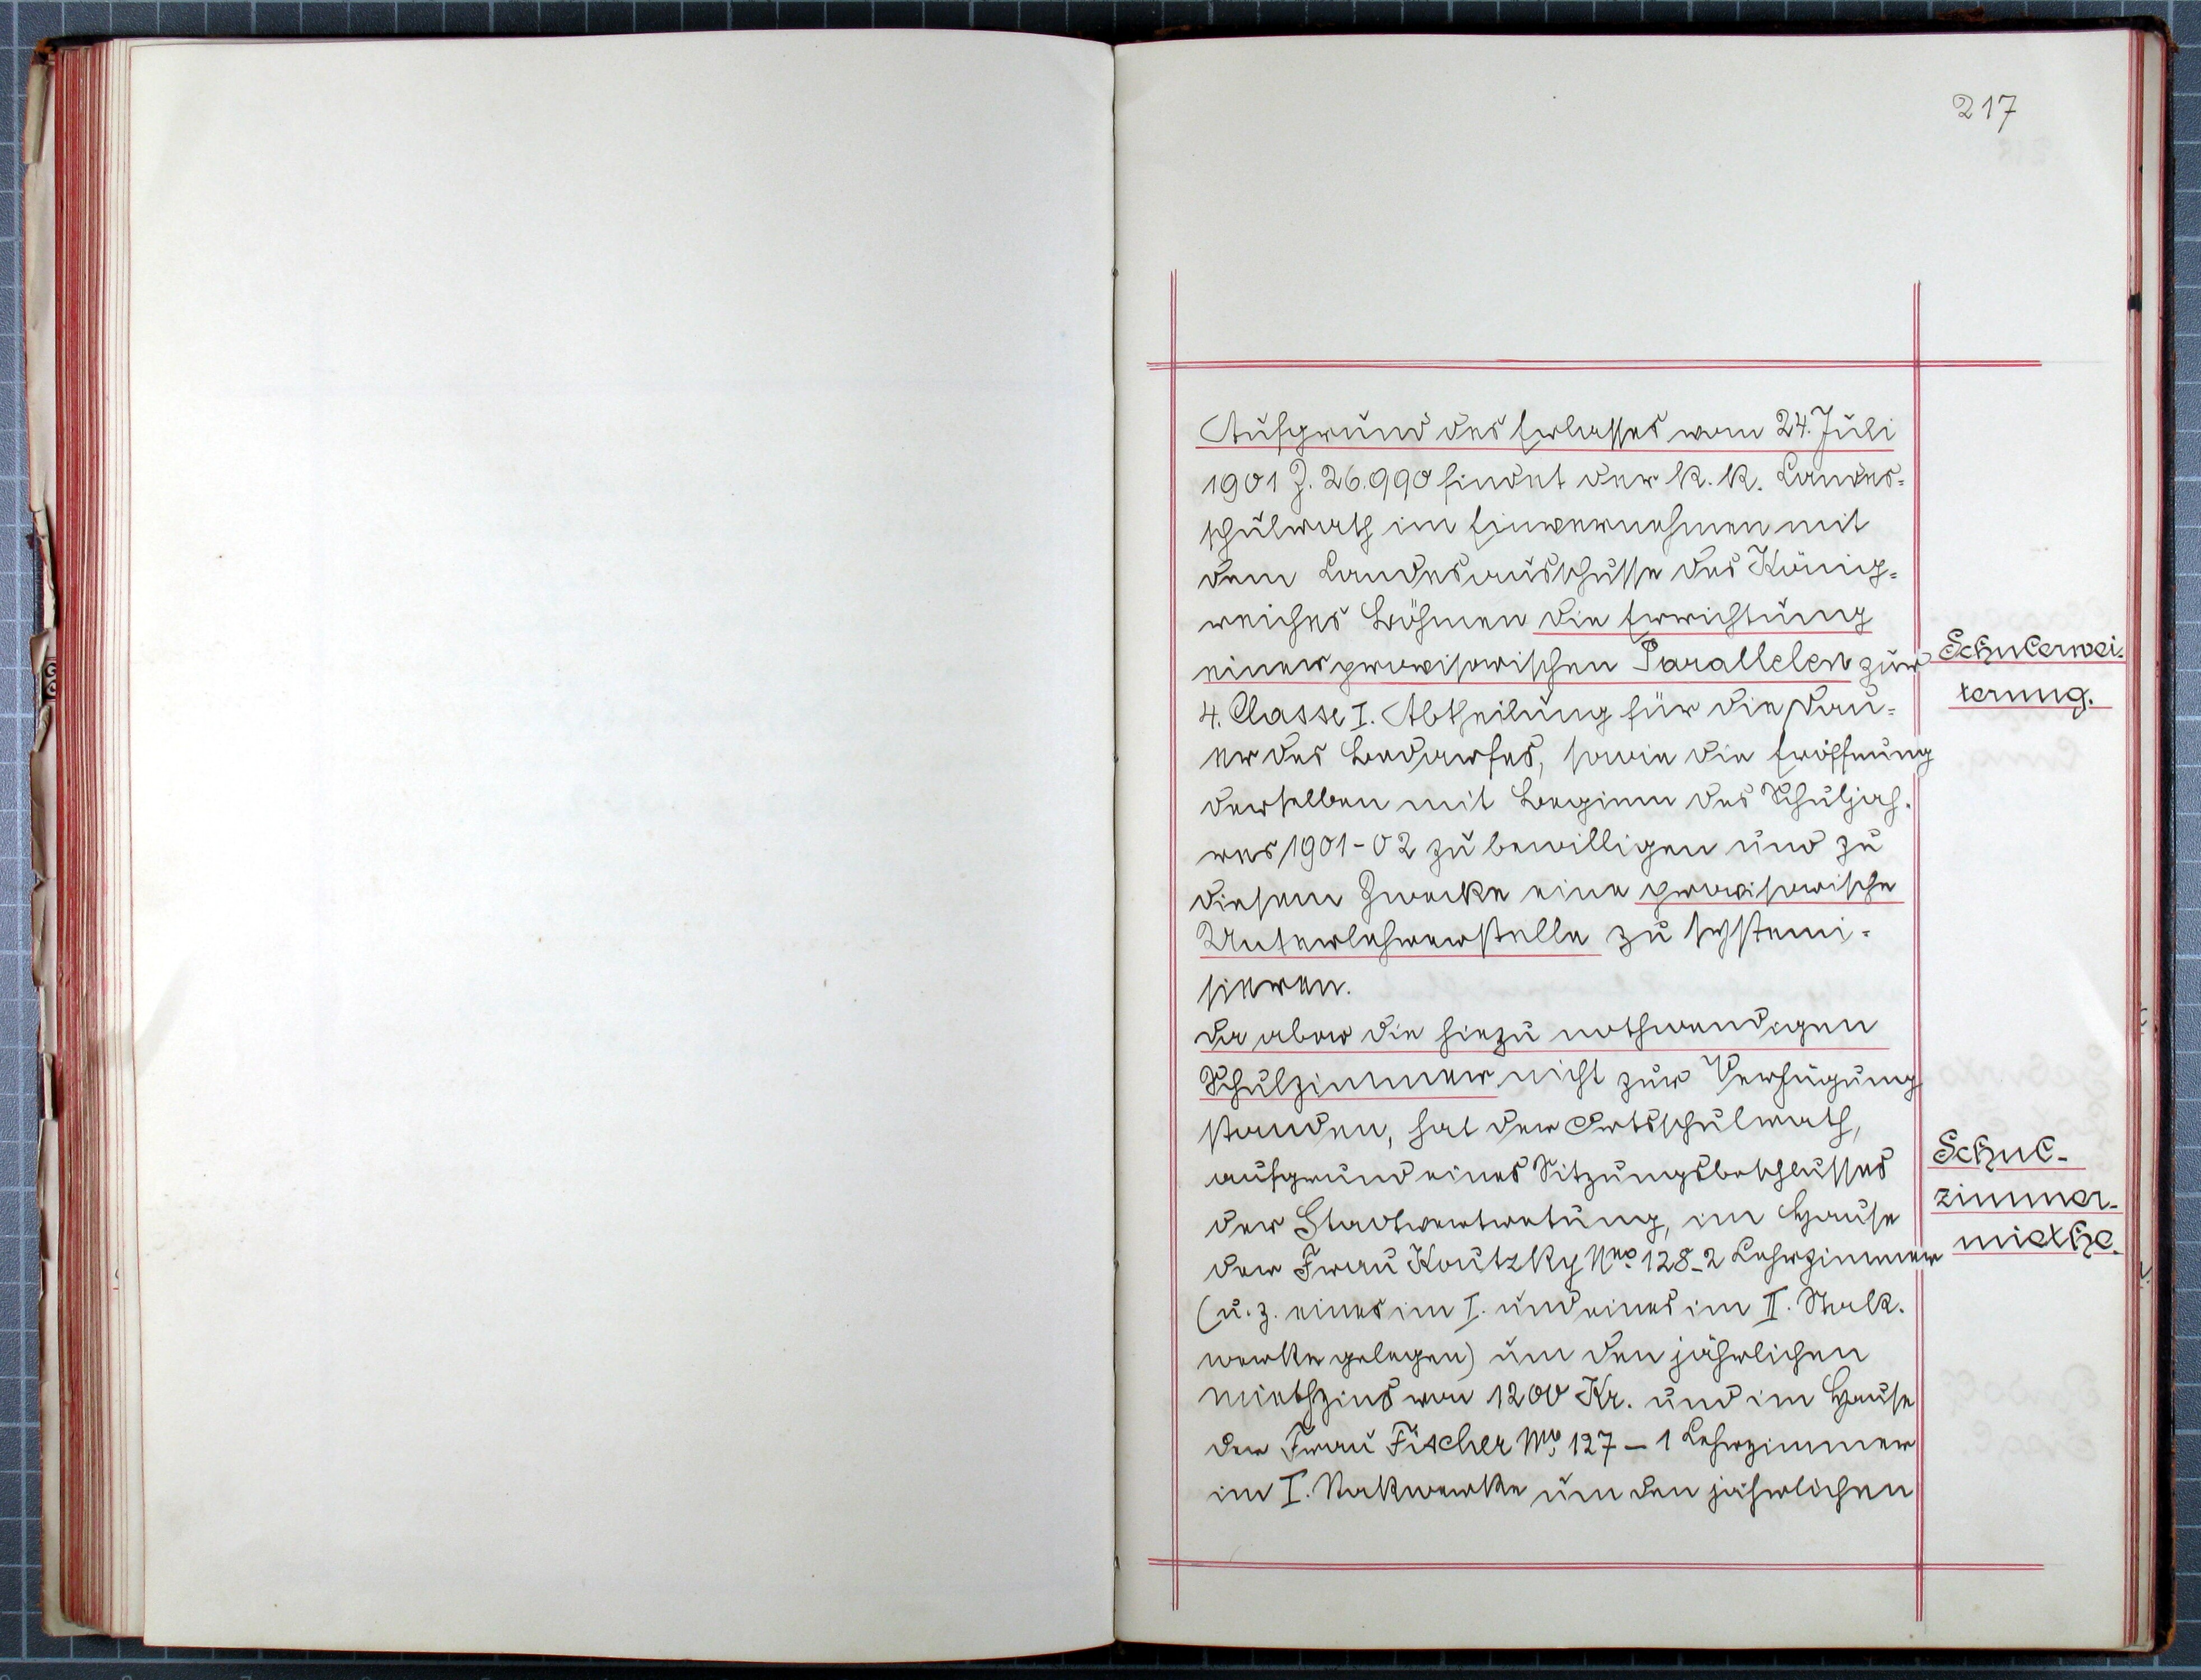 217
Aufgrund des Erlasses vom 24. Juli
1901 Z. 26.990 findet der k. k. Landes=
schulrath im Einvernehmen mit
dem Landesausschusse des König=
reiches Böhmen die Errichtung
einer provisorischen Parallelen zur
Schulerwei-
terung.
4. Classe I. Abtheilung für die Dau=
er des Bedarfes, sowie die Eröffnung
derselben mit Beginn des Schuljah-
res 1901-02 zu bewilligen und zu
diesem Zwecke eine provisorische
Unterlehrerstelle zu systemi=
sieren.
Da aber die hiezu nothwendigen
Schulzimmer nicht zur Verfügung
standen, hat der Ortsschulrath,
aufgrund eines Sitzungsbeschlusses
Schul-
zimmer-
miethe.
der Stadtvertretung, im Hause
der Frau Koutzky Nro. 128-2 Lehrzimmer
(u. z. eines im I. und eines im II. Stock-
werke gelegen) um den jährlichen
Miethzins von 1200 Kr. und im Hause
der Frau Fischer No. 127 - 1 Lehrzimmer
im I. Stokwerke um den jährlichen